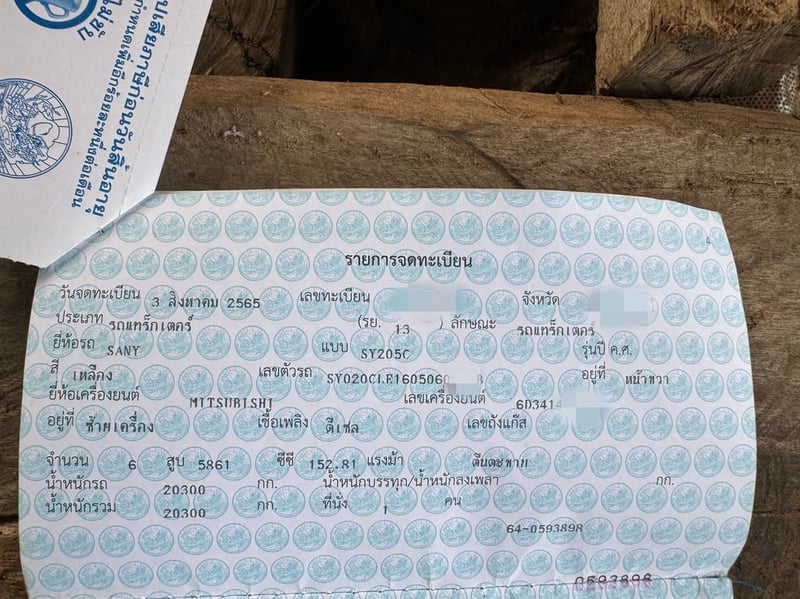 เสียภาษีก่อนวันสิ้นอายุ
กำหนดเพิ่มอีกร้อยละหนึ่งต่อเดือน
รายการจดทะเบียน
วันจดทะเบียน 3 สิงหาคม 2565 เลขทะเบียน จังหวัด
ประเภท รถแทร็กเตอร์ (รย. 13 ) ลักษณะ รถแทร็กเตอร์
ยี่ห้อรถ SANY แบบ SY205C รุ่นปี ค.ศ.
สี เหลือง เลขตัวรถ SY020CLE1605060 8 อยู่ที่ หน้าขวา
ยี่ห้อเครื่องยนต์ MITSUBISHI เลขเครื่องยนต์ 6D3414
อยู่ที่ ซ้ายเครื่อง เชื้อเพลิง ดีเซล เลขถังแก๊ส
จำนวน 6 สูบ 5861 ซีซี 152.81 แรงม้า ตีนตะขาบ
น้ำหนักรถ 20300 กก. น้ำหนักบรรทุก/น้ำหนักลงเพลา กก.
น้ำหนักรวม 20300 กก. ที่นั่ง 1 คน
64-0593898
0593898